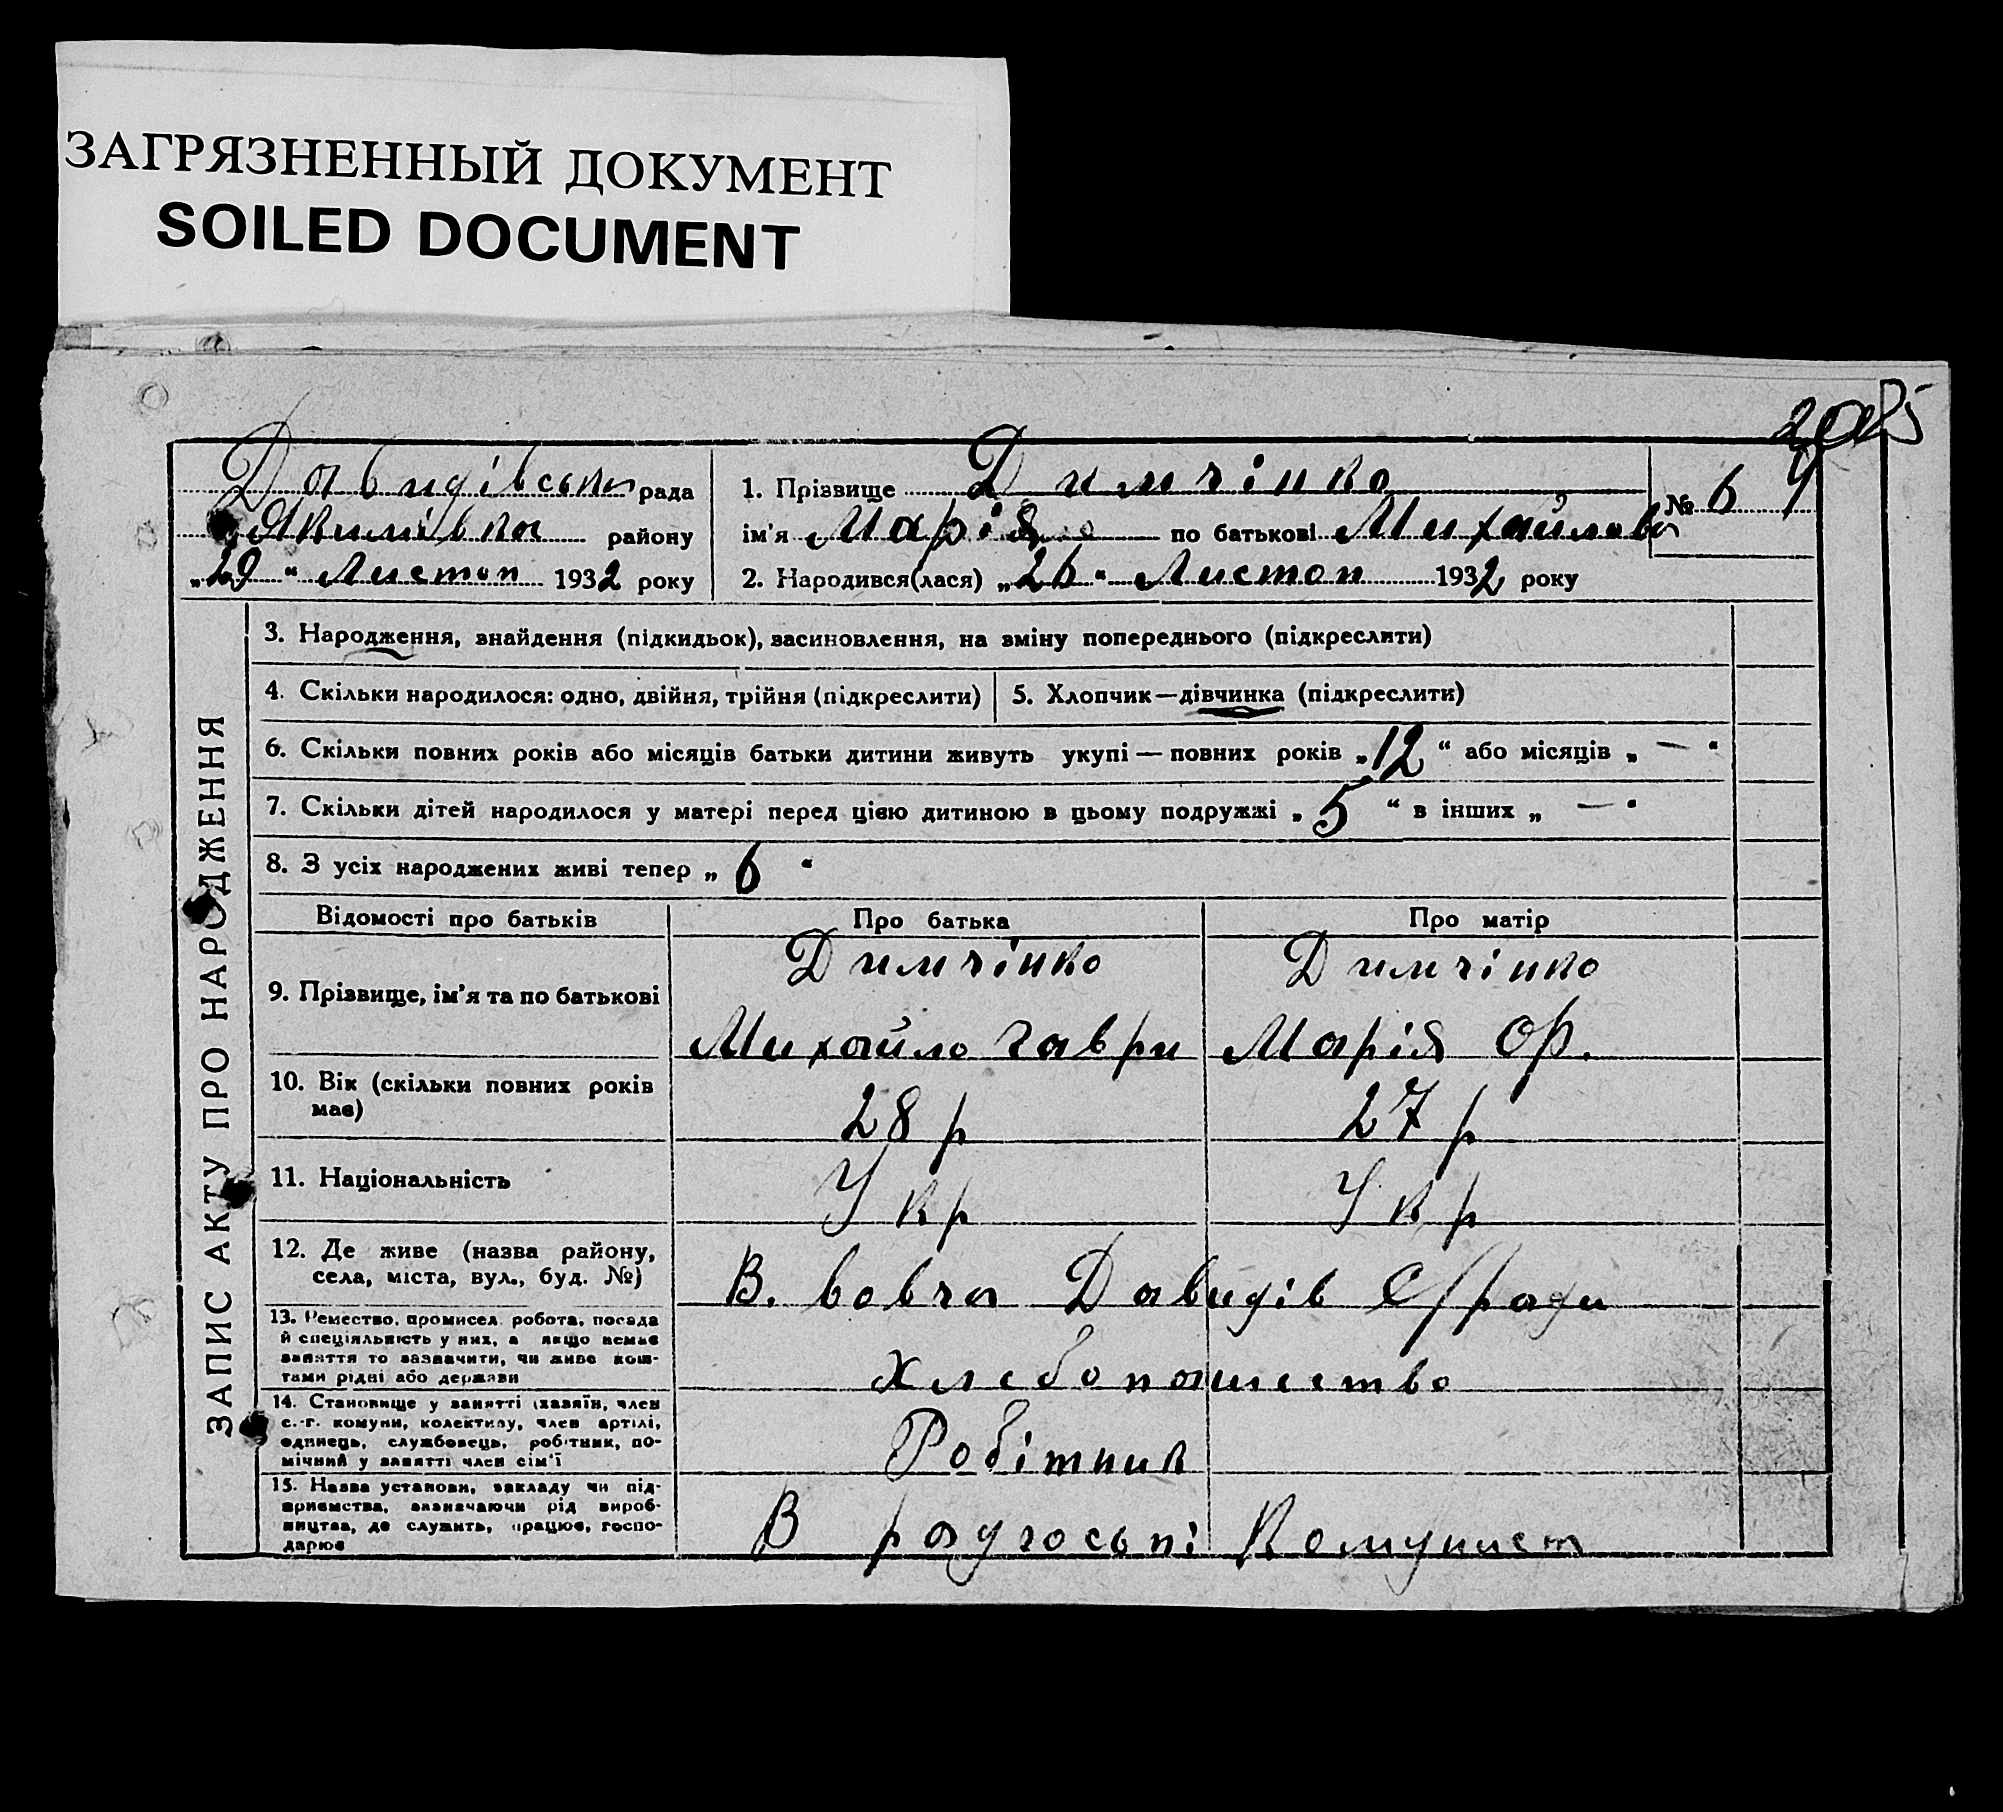 ЗАГРЯЗНЕННЫЙ ДОКУМЕНТ
SOILED DOCUMENT
Давидівська рада
Якимівка району
„29“ Листоп 1932 року
1. Прізвище Димчінко
ім'я Марія по батькові Михайлова
№ 6
2. Народився(лася) „26“ Листоп 1932 року
ЗАПИС АКТУ ПРО НАРОДЖЕННЯ
3. Народження, знайдення (підкидьок), засиновлення, на зміну попереднього (підкреслити)
4. Скільки народилося: одно, двійня, трійня (підкреслити) 5. Хлопчик—дівчинка (підкреслити)
6. Скільки повних років або місяців батьки дитини живуть укупі — повних років „12“ або місяців „ — “
7. Скільки дітей народилося у матері перед цією дитиною в цьому подружжі „5“ в інших „ — “
8. З усіх народжених живі тепер „6“
Відомості про батьків Про батька Про матір
9. Прізвище, ім'я та по батькові
Димчінко Димчінко
Михайло Гаври Марія Ор.
10. Вік (скільки повних років має)
28 р 27 р
11. Національність
Укр Укр
12. Де живе (назва району, села, міста, вул., буд. №)
В. вовча Давидів С/ради
13. Ремество, промисел, робота, посада
й спеціяльність у них, а якщо немає
заняття то зазначити, чи живе кош-
тами рідні або держави
Хлебопашество
14. Становище у занятті (хазяїн, член
с.-г. комуни, колективу, член артілі,
одинець, службовець, робітник, по-
мічний у занятті член сім'ї
Робітник
15. Назва установи, закладу чи під-
приємства, зазначаючи рід вироб-
ництва, де служить, працює, госпо-
дарює
В радгоспі Комунист